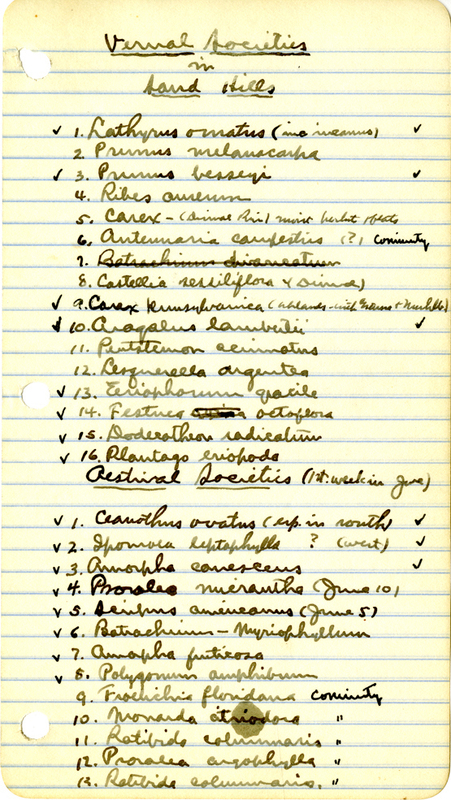 Vernal Societies
in
Sand Hills
✓ 1. Lathyrus ornatus (inc incanus) ✓
2. Prunus melanocarpa
✓ 3. Prunus besseyi ✓
4. Ribes aureum
5. Carex - moist
6. Antennaria campestris (?) Cominuty
7. Batrachium divaricatum
8. Castilleia sessiliflora
✓ 9. Carex Pennsylvanica
✓ 10. Aragalus lambertii ✓
11. Pentstemon acuminatus
12. Lesquerella argentea
✓ 13. Eriophorum gracile
✓ 14. Festuca octoflora
✓ 15. Dodecatheon radicatum
✓ 16. Plantago eriopoda
Aestival Societies (1st. week in June)
✓ 1. Ceanothus ovatus (esp. in south) ✓
✓ 2. Ipomoea leptophylla ? (west) ✓
✓ 3. Amorpha canescens ✓
✓ 4. Psoralea micrantha (June 10)
✓ 5. Scirpus americanus (June 5)
✓ 6. Batrachium - Myriophyllum
✓ 7. Amorpha fruticosa
✓ 8. Polygonum amphibium
9. Froelichia floridana Cominuty
10. Monarda "
11. Ratibida columnaris "
12. Psoralea argophylla "
13. Ratibida columnaris, "